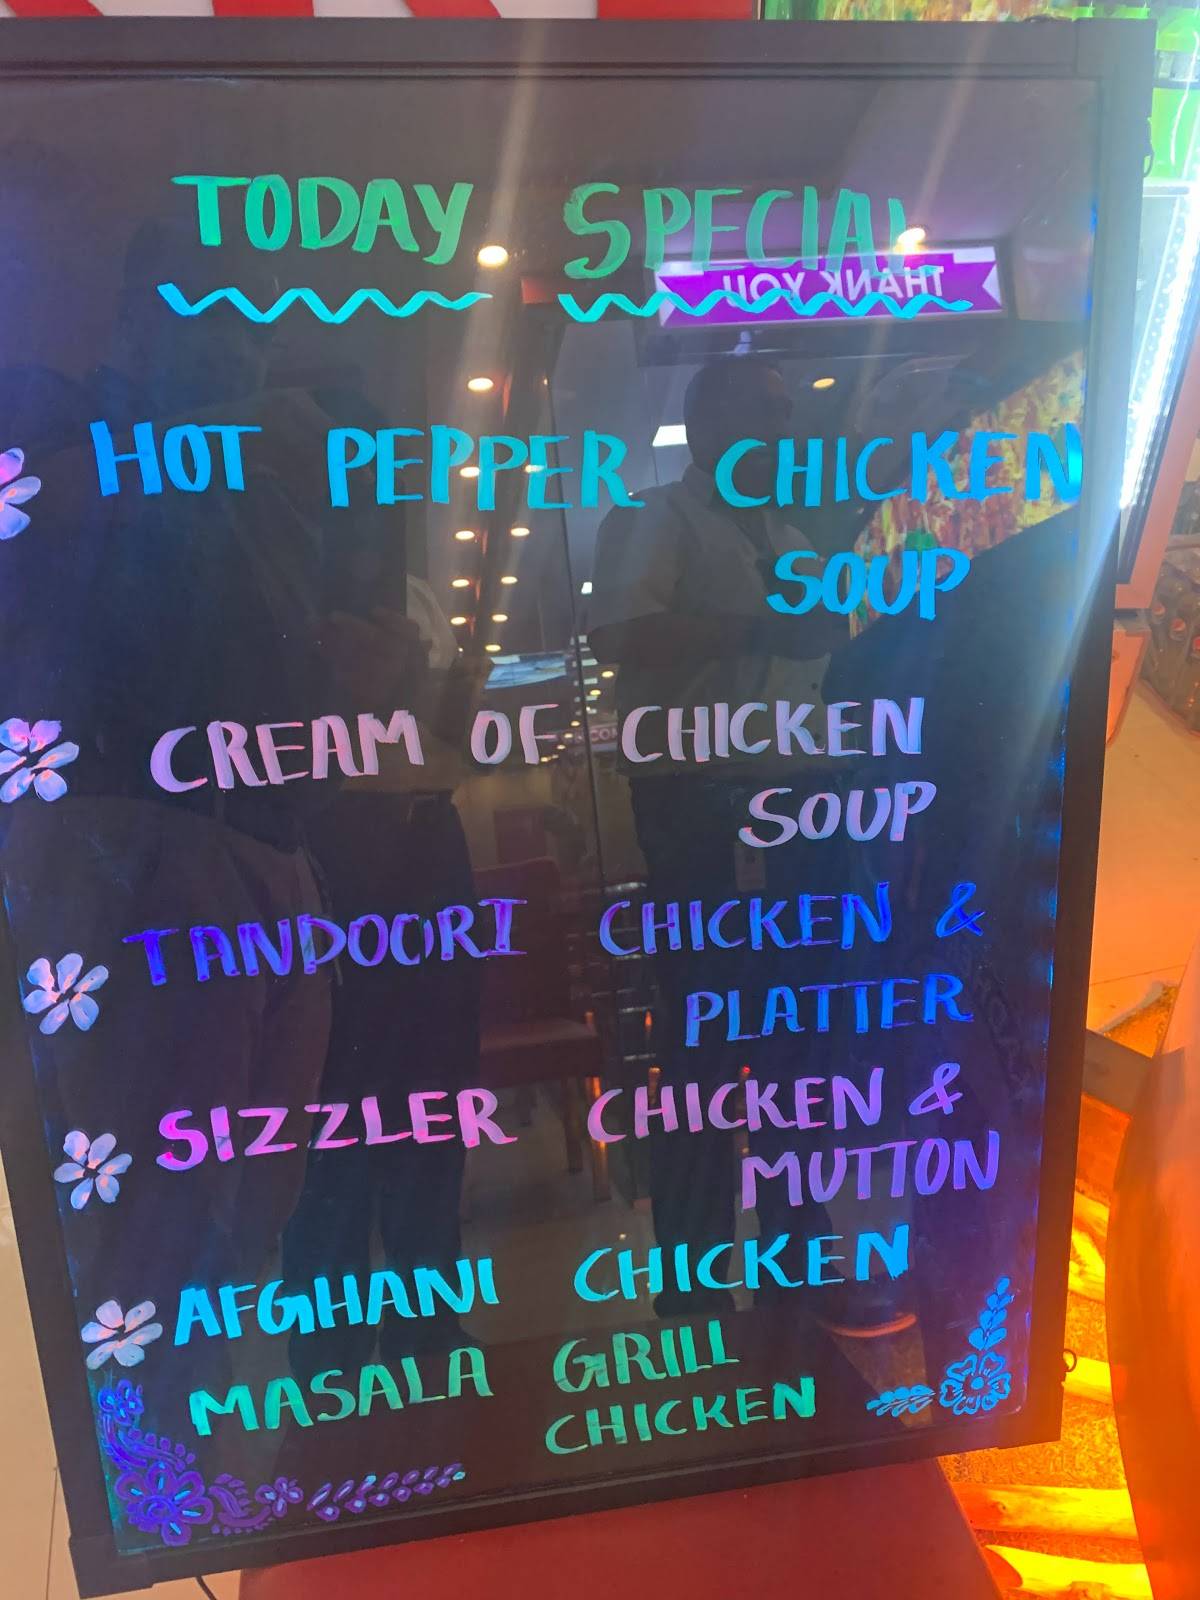 TODAY SPECIAL
THANK YOU
HOT PEPPER CHICKEN
SOUP
CREAM OF CHICKEN
SOUP
TANDOORI CHICKEN &
PLATTER
SIZZLER CHICKEN &
MUTTON
AFGHANI CHICKEN
MASALA GRILL
CHICKEN